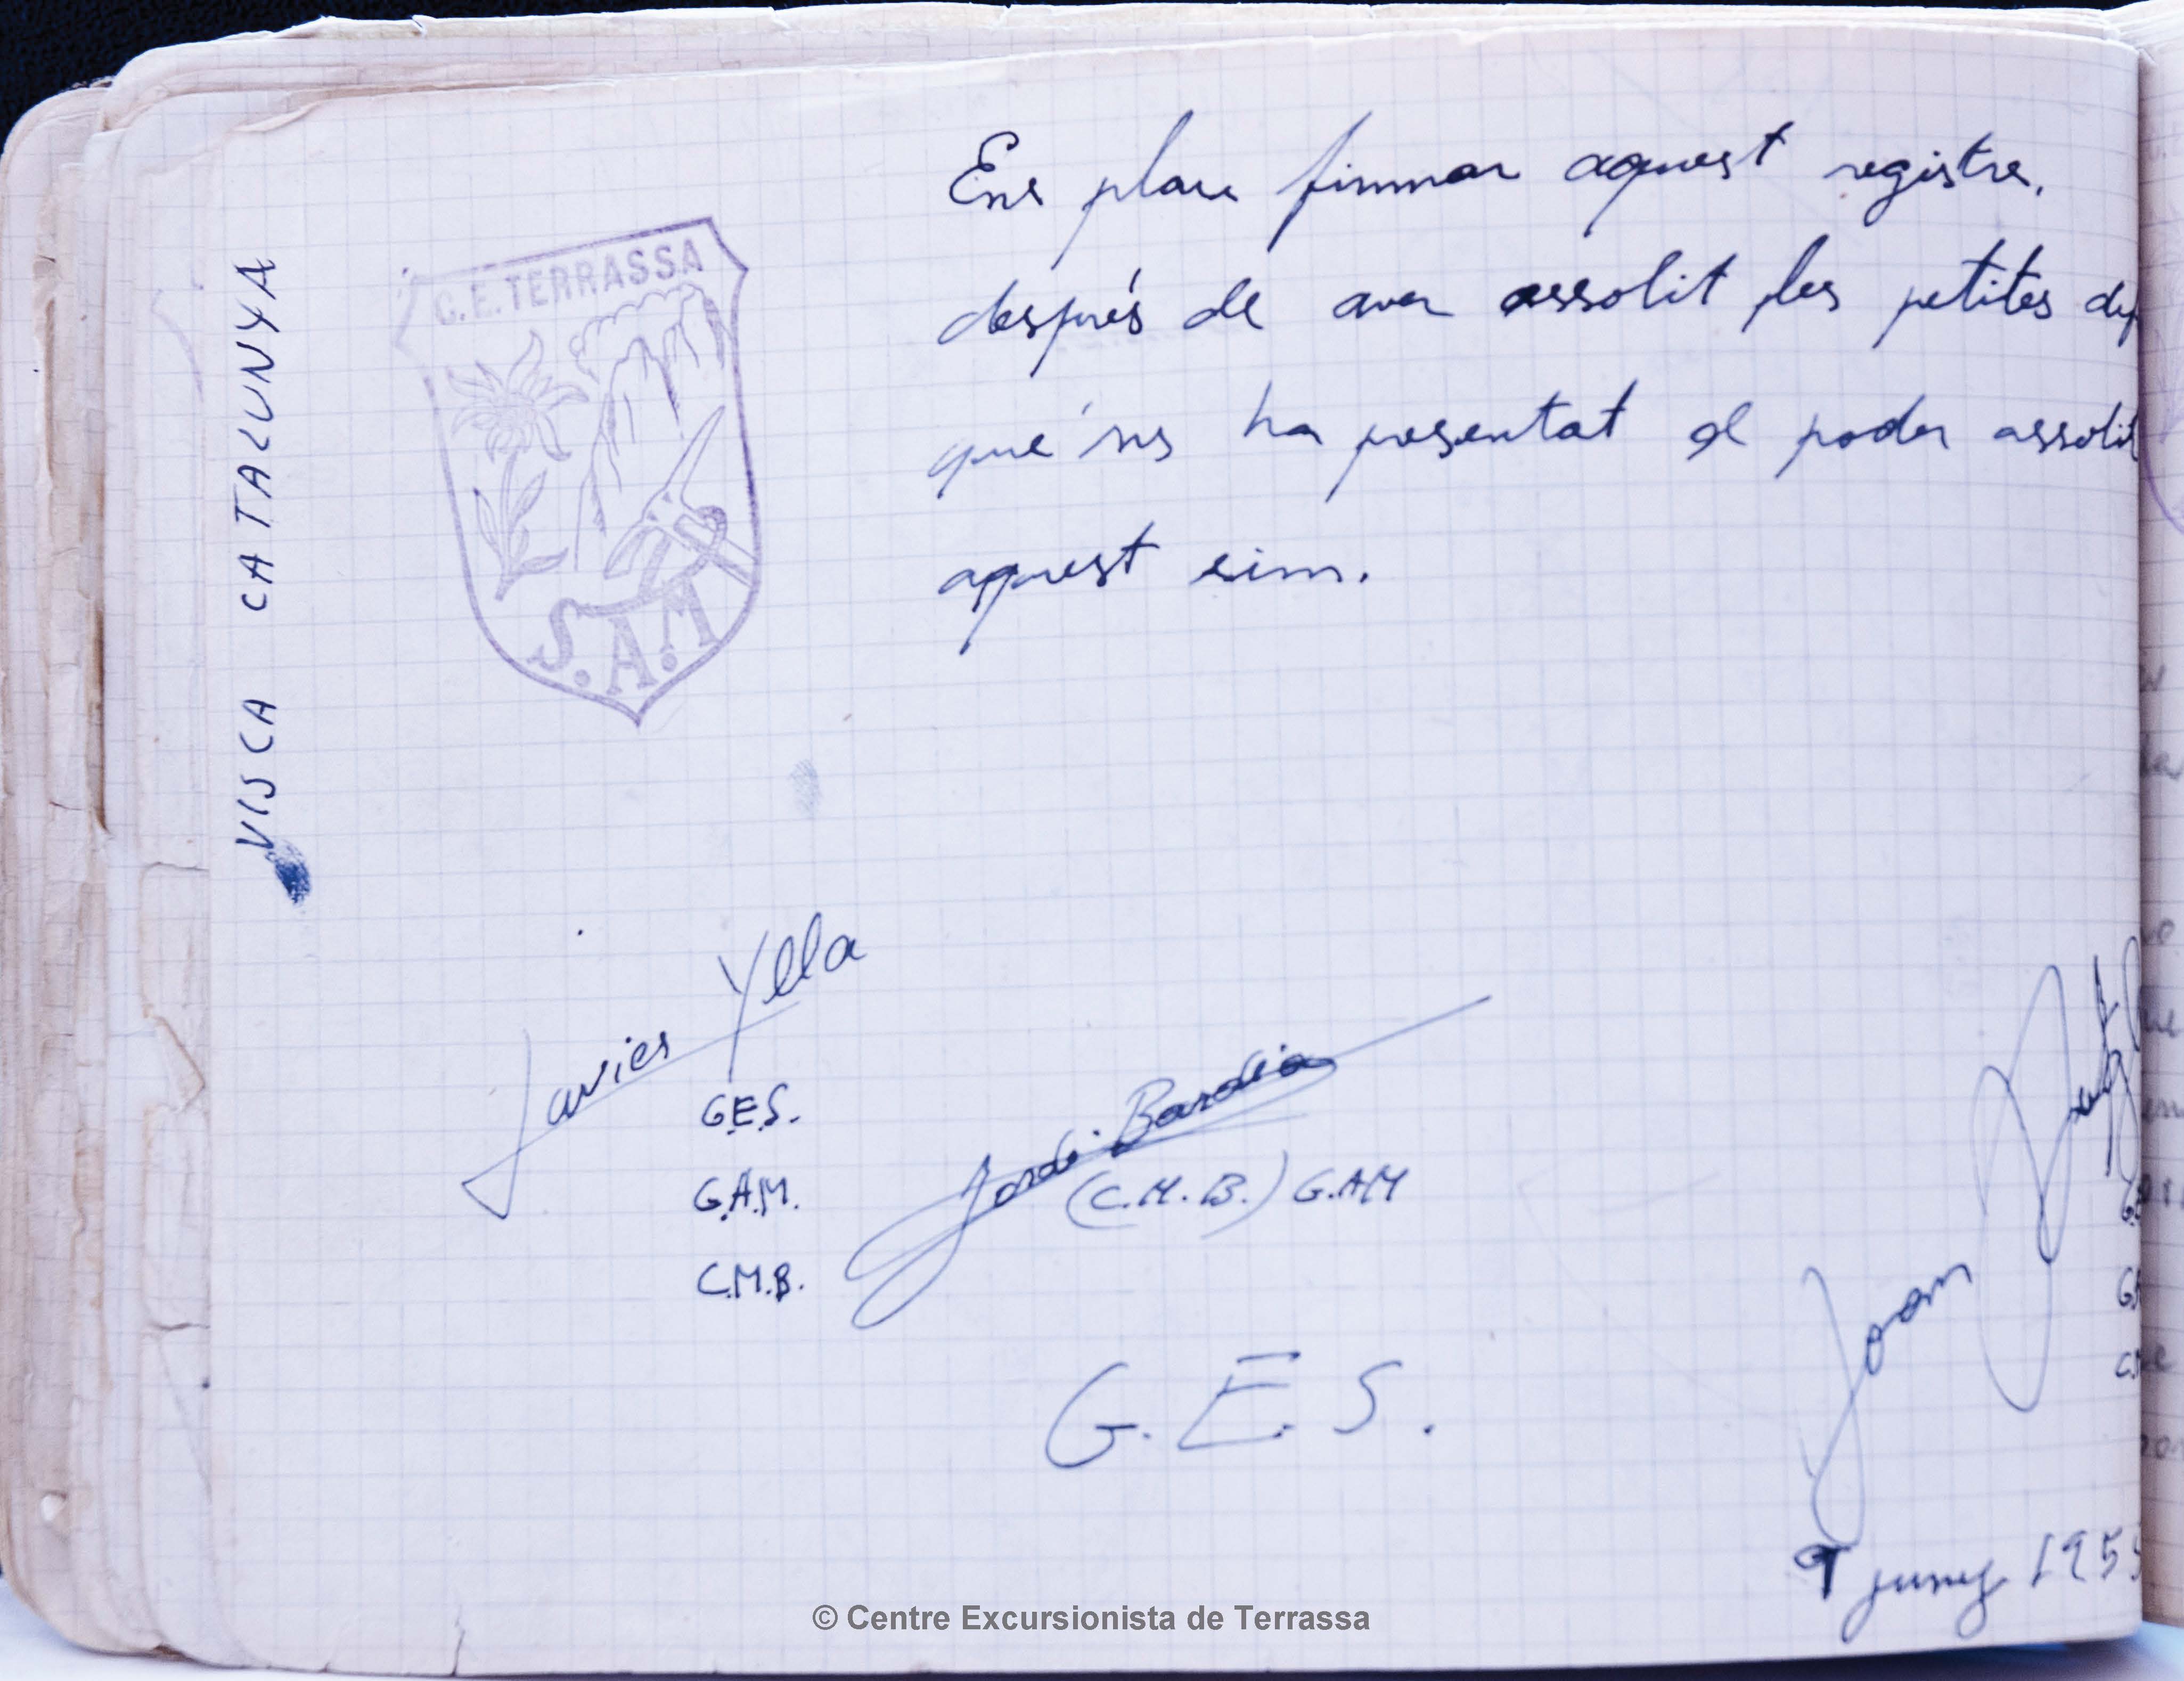 VISCA CATALUNYA
C.E. TERRASSA
S.A.M
Ens plau firmar aquest registre,
després de aver assolit les petites
que'ns ha presentat el poder assolit
aquest sim.
Javier Ylla
G.E.S.
G.A.M.
C.M.B.
Jordi Bardia
(C.M.B.) G.A.M
G.E.S.
Joan
juny 195
© Centre Excursionista de Terrassa